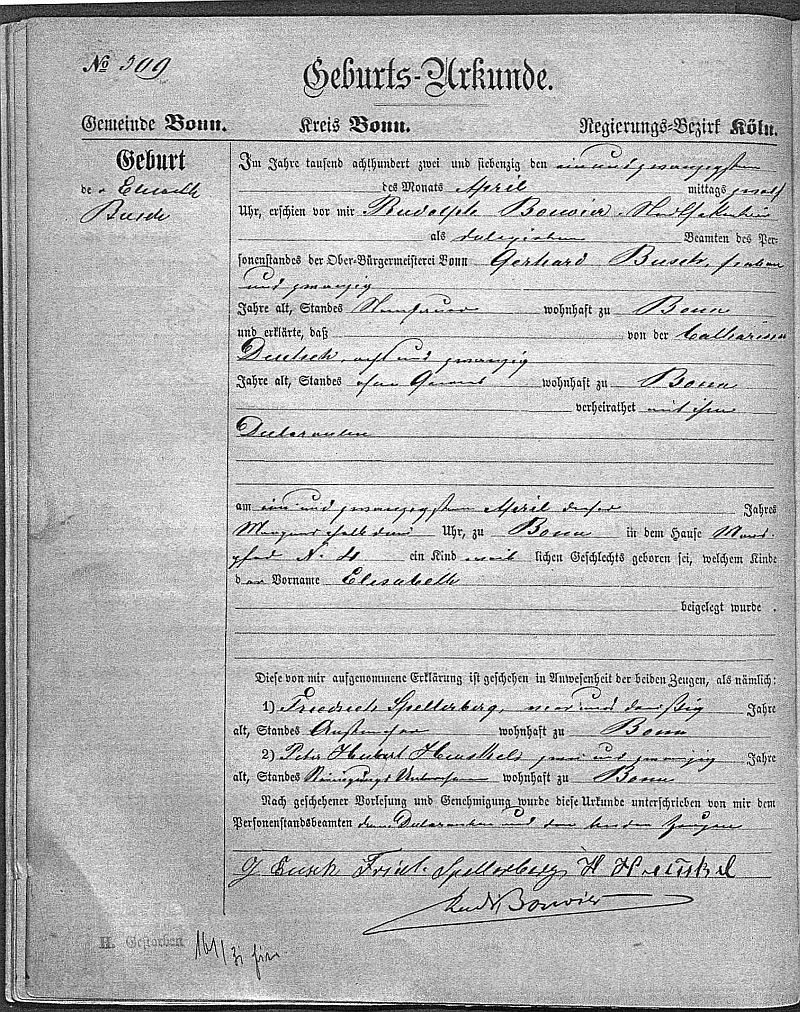 № 509
Geburts-Urkunde.
Gemeinde Bonn. Kreis Bonn. Regierungs-Bezirk Köln.
Geburt
de r Elisabeth
Busch
Im Jahre tausend achthundert zwei und siebenzig den ein und zwanzigsten
des Monats April mittags zwölf
Uhr, erschien vor mir Rudolph Bouvier
als delegirten Beamten des Per-
sonenstandes der Ober-Bürgermeisterei Bonn Gerhard Busch, sieben
und zwanzig
Jahre alt, Standes wohnhaft zu Bonn
und erklärte, daß von der Catharina
Deutsch, acht und zwanzig
Jahre alt, Standes ohne Gewerb wohnhaft zu Bonn
verheirathet mit ihm
Declaranten
am ein und zwanzigsten April dieses Jahres
Morgens halb drei Uhr, zu Bonn in dem Hause
pfad No 4 ein Kind weib lichen Geschlechts geboren sei, welchem Kinde
d er Vorname Elisabeth
beigelegt wurde.
Diese von mir aufgenommene Erklärung ist geschehen in Anwesenheit der beiden Zeugen, als nämlich:
1) Friedrich Spellerberg, vier und dreißig Jahre
alt, Standes Anstreicher wohnhaft zu Bonn
2) Peter Hubert Henskel, zwei und zwanzig Jahre
alt, Standes wohnhaft zu Bonn
Nach geschehener Vorlesung und Genehmigung wurde diese Urkunde unterschrieben von mir dem
Personenstandsbeamten dem Declaranten und den beiden Zeugen
G Busch Fried. Spellerberg H Henskel
Rud. Bouvier
H. Gestorben